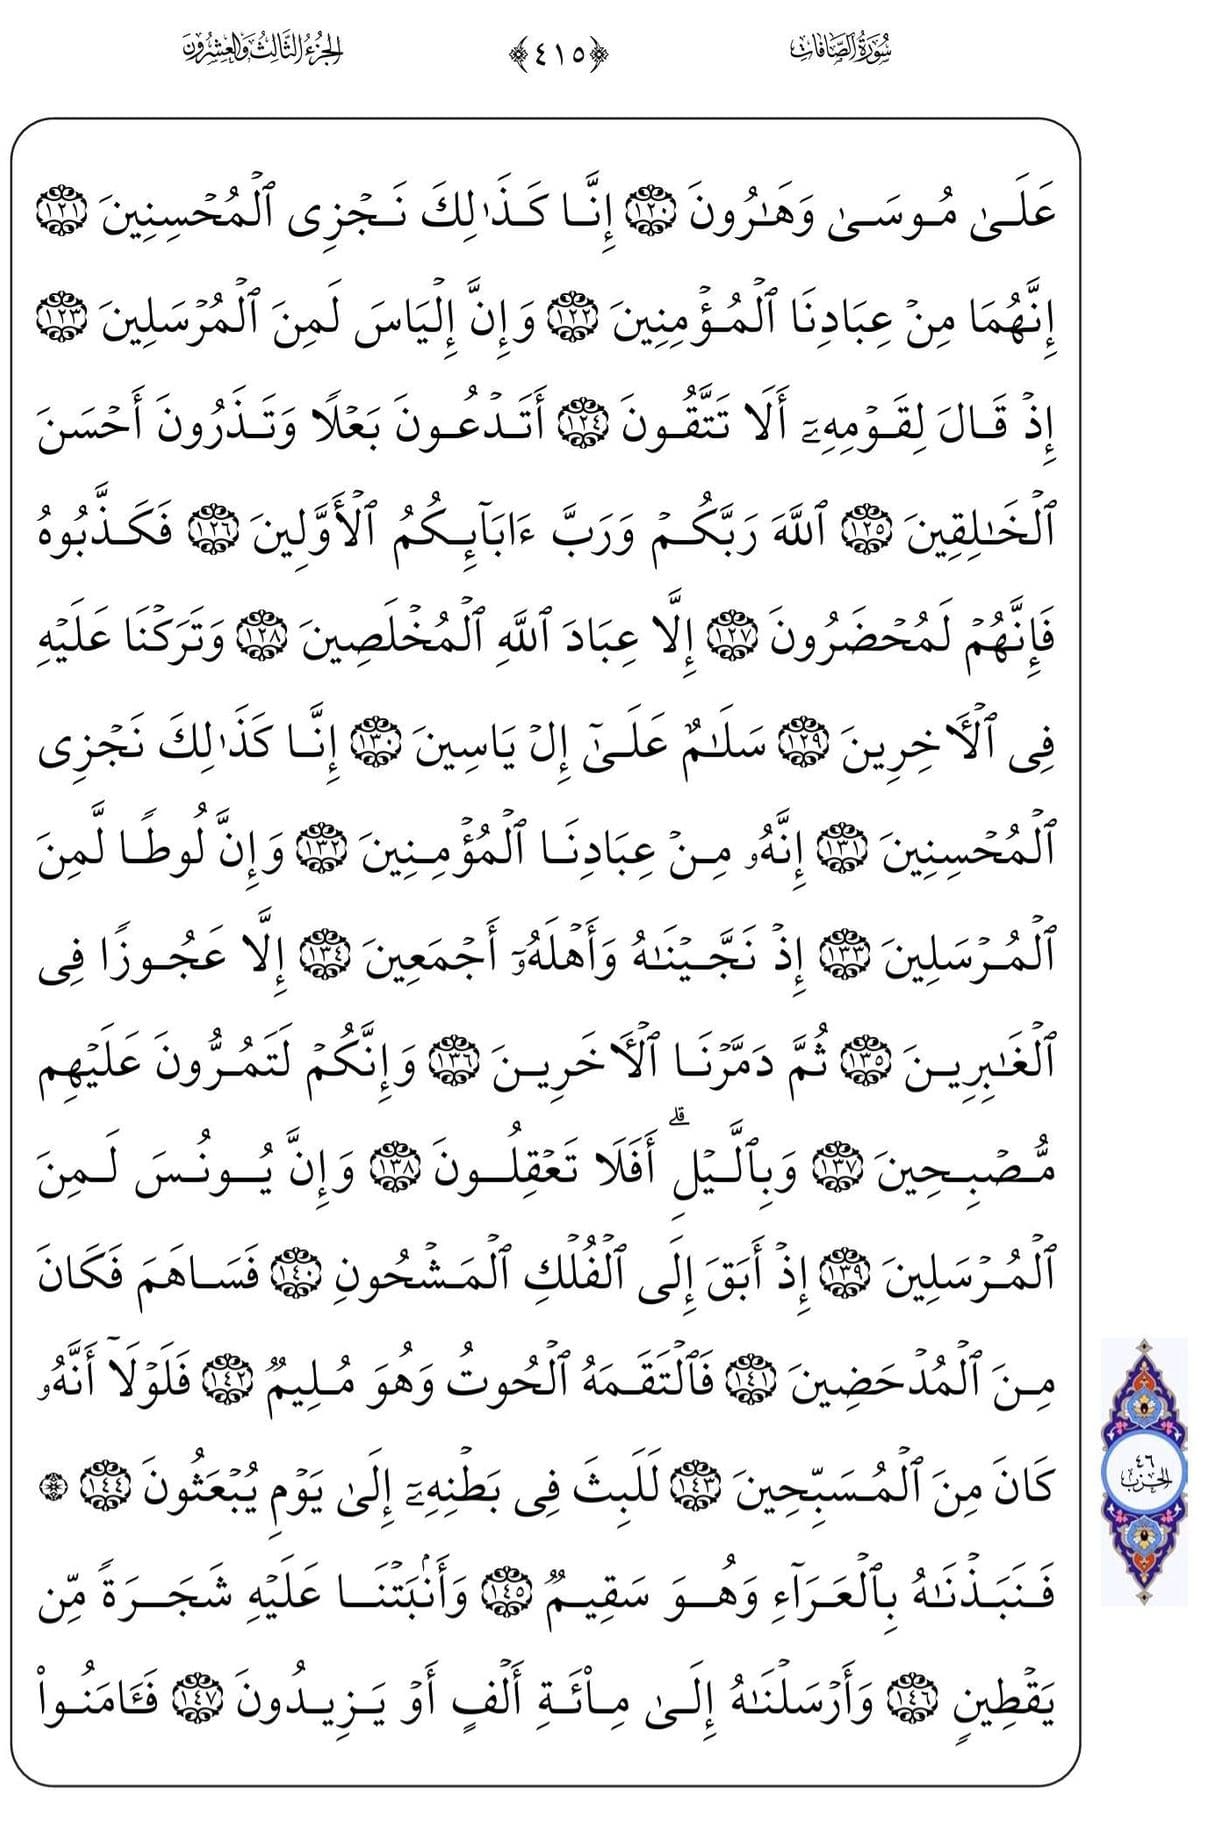 سُورَةُ الصَّافَّاتِ
﴿٤١٥﴾
الجُزْءُ الثَّالِثُ وَالعِشْرُونَ
عَلَىٰ مُوسَىٰ وَهَٰرُونَ ١٢٠ إِنَّا كَذَٰلِكَ نَجْزِى ٱلْمُحْسِنِينَ ١٢١
إِنَّهُمَا مِنْ عِبَادِنَا ٱلْمُؤْمِنِينَ ١٢٢ وَإِنَّ إِلْيَاسَ لَمِنَ ٱلْمُرْسَلِينَ ١٢٣
إِذْ قَالَ لِقَوْمِهِۦٓ أَلَا تَتَّقُونَ ١٢٤ أَتَدْعُونَ بَعْلًا وَتَذَرُونَ أَحْسَنَ
ٱلْخَٰلِقِينَ ١٢٥ ٱللَّهَ رَبَّكُمْ وَرَبَّ ءَابَآئِكُمُ ٱلْأَوَّلِينَ ١٢٦ فَكَذَّبُوهُ
فَإِنَّهُمْ لَمُحْضَرُونَ ١٢٧ إِلَّا عِبَادَ ٱللَّهِ ٱلْمُخْلَصِينَ ١٢٨ وَتَرَكْنَا عَلَيْهِ
فِى ٱلْأَخِرِينَ ١٢٩ سَلَٰمٌ عَلَىٰٓ إِلْ يَاسِينَ ١٣٠ إِنَّا كَذَٰلِكَ نَجْزِى
ٱلْمُحْسِنِينَ ١٣١ إِنَّهُۥ مِنْ عِبَادِنَا ٱلْمُؤْمِنِينَ ١٣٢ وَإِنَّ لُوطًا لَّمِنَ
ٱلْمُرْسَلِينَ ١٣٣ إِذْ نَجَّيْنَٰهُ وَأَهْلَهُۥٓ أَجْمَعِينَ ١٣٤ إِلَّا عَجُوزًا فِى
ٱلْغَٰبِرِينَ ١٣٥ ثُمَّ دَمَّرْنَا ٱلْأَخَرِينَ ١٣٦ وَإِنَّكُمْ لَتَمُرُّونَ عَلَيْهِم
مُّصْبِحِينَ ١٣٧ وَبِٱلَّيْلِ ۗ أَفَلَا تَعْقِلُونَ ١٣٨ وَإِنَّ يُونُسَ لَمِنَ
ٱلْمُرْسَلِينَ ١٣٩ إِذْ أَبَقَ إِلَى ٱلْفُلْكِ ٱلْمَشْحُونِ ١٤٠ فَسَاهَمَ فَكَانَ
مِنَ ٱلْمُدْحَضِينَ ١٤١ فَٱلْتَقَمَهُ ٱلْحُوتُ وَهُوَ مُلِيمٌ ١٤٢ فَلَوْلَآ أَنَّهُۥ
كَانَ مِنَ ٱلْمُسَبِّحِينَ ١٤٣ لَلَبِثَ فِى بَطْنِهِۦٓ إِلَىٰ يَوْمِ يُبْعَثُونَ ١٤٤ ۞
فَنَبَذْنَٰهُ بِٱلْعَرَآءِ وَهُوَ سَقِيمٌ ١٤٥ وَأَنۢبَتْنَا عَلَيْهِ شَجَرَةً مِّن
يَقْطِينٍ ١٤٦ وَأَرْسَلْنَٰهُ إِلَىٰ مِا۟ئَةِ أَلْفٍ أَوْ يَزِيدُونَ ١٤٧ فَـَٔامَنُوا۟
٤٦
الحزب